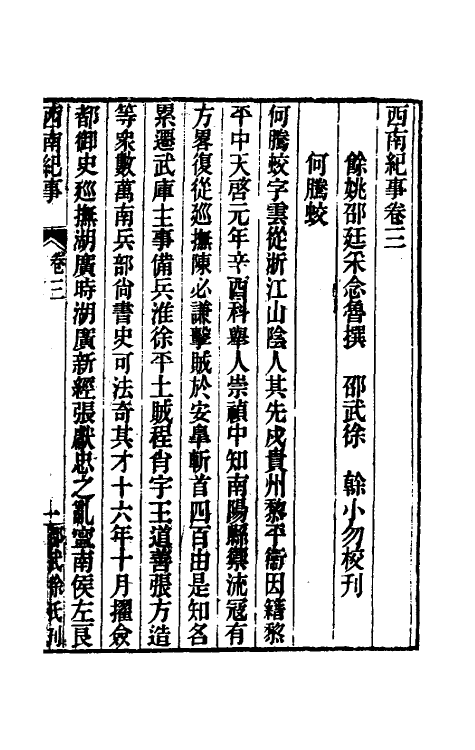 西南紀事卷三
餘姚邵廷采念魯撰　邵武徐　榦小勿校刊
何騰蛟
何騰蛟字雲從浙江山陰人其先戍貴州黎平衞因籍黎
平中天啓元年辛酉科舉人崇禎中知南陽縣禦流冦有
方畧復從巡撫陳必謙擊賊於安臯斬首四百由是知名
累遷武庫主事備兵淮徐平土賊程肖宇王道善張方造
等衆數萬南兵部尙書史可法奇其才十六年十月擢僉
都御史巡撫湖廣時湖廣新經張獻忠之亂寧南侯左良
西南紀事　卷三　一　邵武徐氏刊